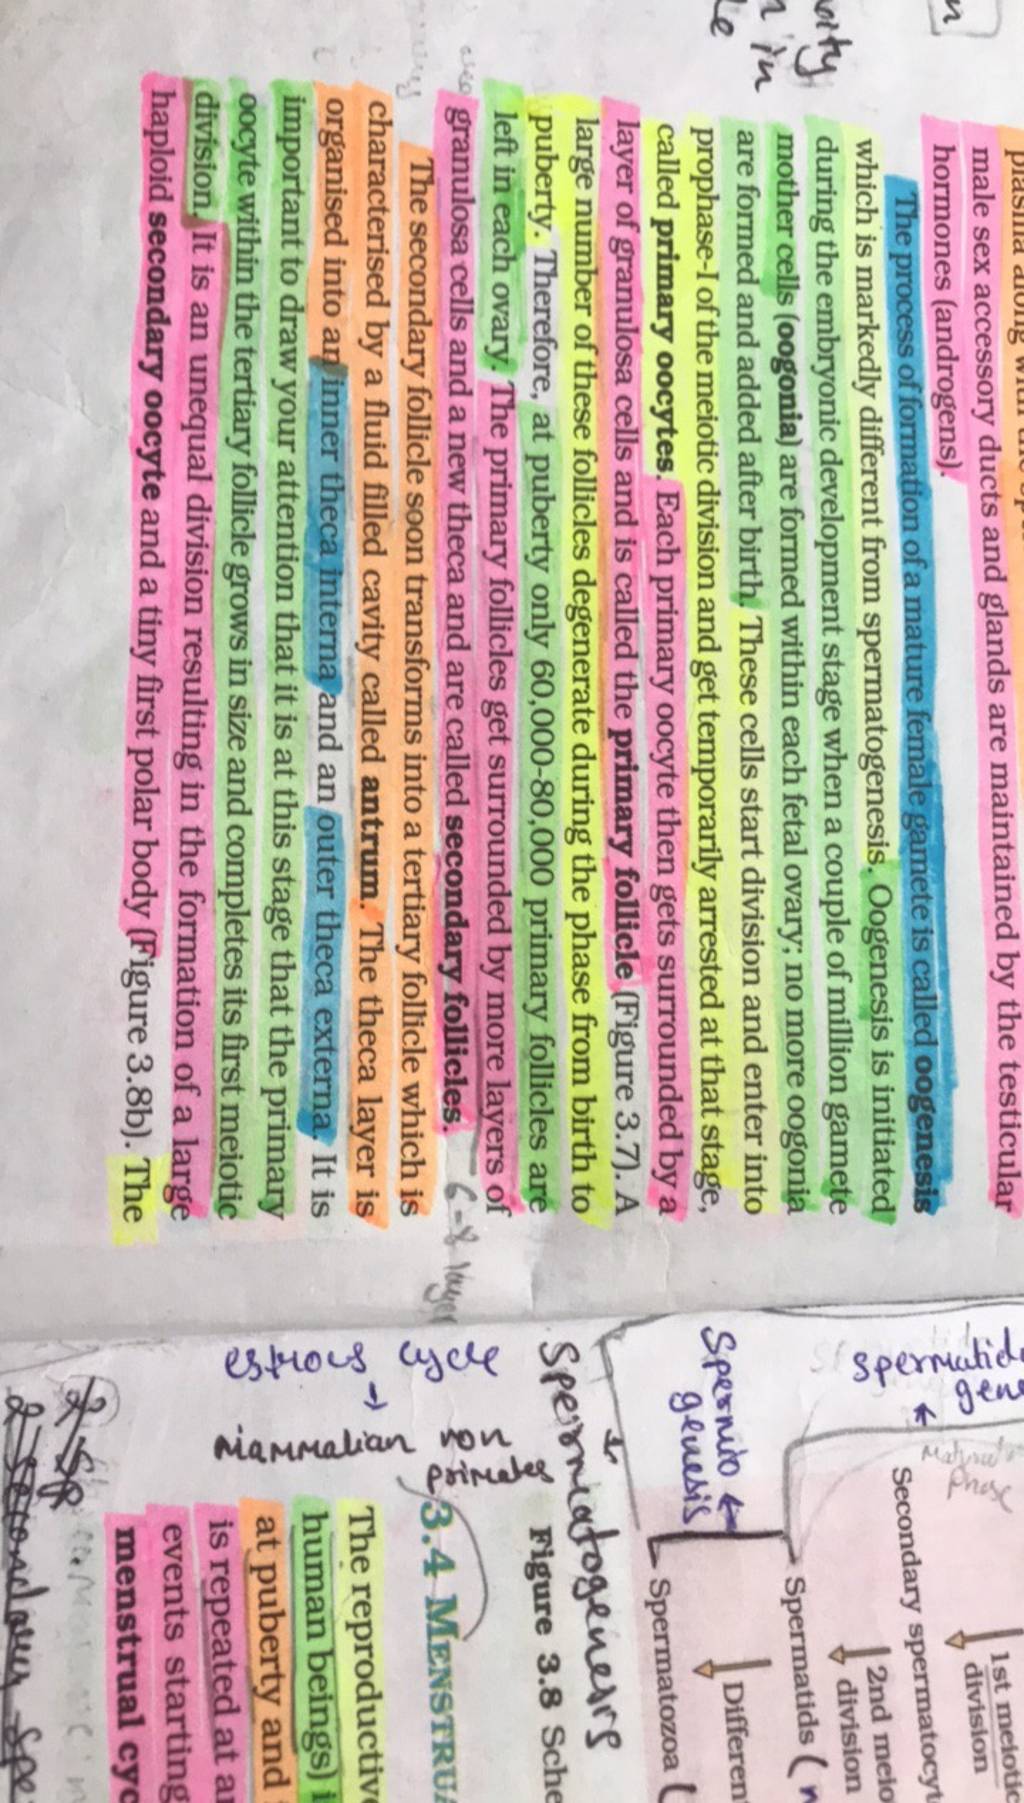 male sex accessory ducts and glands are maintained by the testicular
hormones (androgens).
The process of formation of a mature female gamete is called oogenesis
which is markedly different from spermatogenesis. Oogenesis is initiated
during the embryonic development stage when a couple of million gamete
mother cells (oogonia) are formed within each fetal ovary; no more oogonia
are formed and added after birth. These cells start division and enter into
prophase-I of the meiotic division and get temporarily arrested at that stage,
called primary oocytes. Each primary oocyte then gets surrounded by a
layer of granulosa cells and is called the primary follicle (Figure 3.7). A
large number of these follicles degenerate during the phase from birth to
puberty. Therefore, at puberty only 60,000-80,000 primary follicles are
left in each ovary. The primary follicles get surrounded by more layers of
granulosa cells and a new theca and are called secondary follicles.
6-8 layer
The secondary follicle soon transforms into a tertiary follicle which is
characterised by a fluid filled cavity called antrum. The theca layer is
organised into an inner theca interna and an outer theca externa. It is
important to draw your attention that it is at this stage that the primary
oocyte within the tertiary follicle grows in size and completes its first meiotic
division. It is an unequal division resulting in the formation of a large
haploid secondary oocyte and a tiny first polar body (Figure 3.8b). The
1st meiotic
division
Secondary spermatocyt
2nd meio
division
Spermatids (n
Differen
Spermatozoa (
spermatid
Phase
Spermio
genesis
Spermatogenesis
Figure 3.8 Sche
estrous cycle
mammalian non
primates
3.4 MENSTRUA
The reproductive
human beings) i
at puberty and
is repeated at a
events starting
menstrual cyc